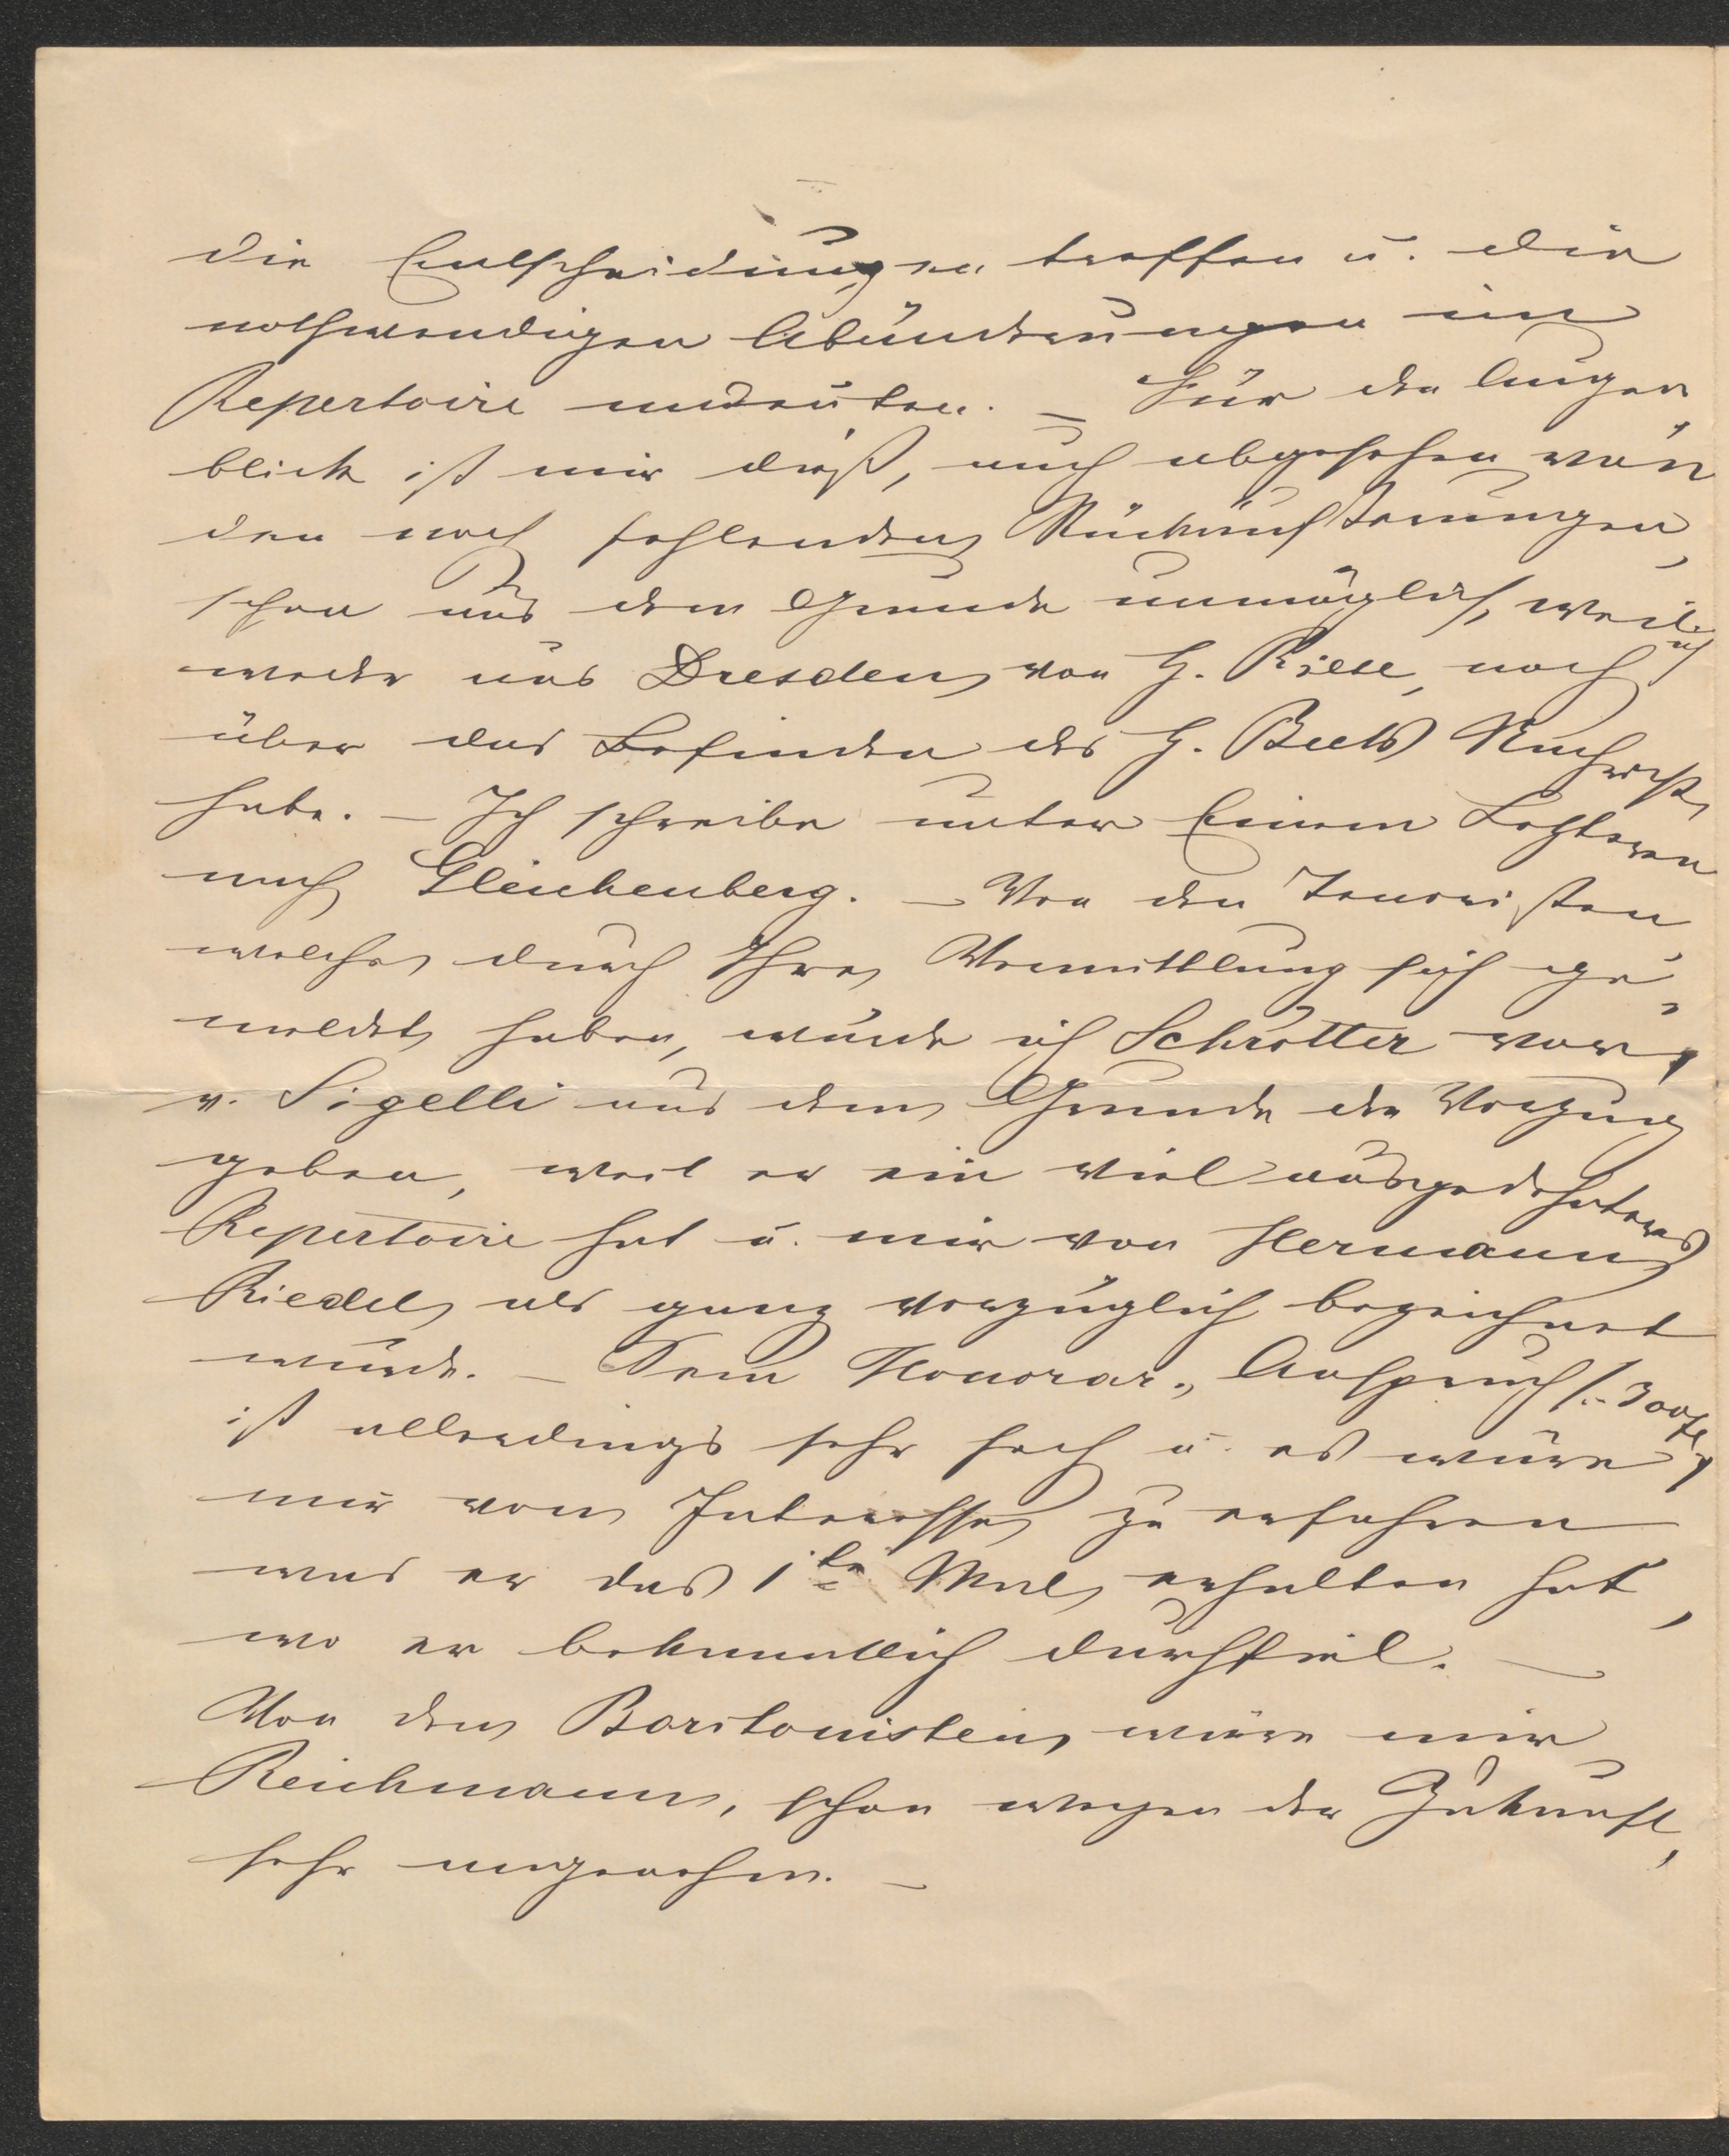 die Entscheidungen treffen u. die
nothwendigen Abänderungen im
Repertoire andeuten. – Für den Augen
blick ist mir dieß, auch abgesehen von
den noch fehlenden Rückäußerungen,
schon aus dem Grunde unmöglich, weil ich
weder aus Dresden von H. Riese, noch
über das Befinden des H. Beck Nachricht
habe. – Ich schreibe unter Einem Letzteren
nach Gleichenberg. – Von den Tenoristen
welche durch Ihre Vermittlung sich ge„
meldet haben, würde ich Schrötter vor,
v. Sigelli aus dem Grunde den Vorzug
geben, weil er ein viel ausgedehnteres
Repertoire hat u. mir von Hermann
Riedel als ganz vorzüglich bezeichnet
wurde. – Sein Honorar„ Anspruch /: 300 fl :/
ist allerdings sehr hoch u. es wäre
mir von Interesse zu erfahren
was er das 1te Mal erhalten hat,
wo er bekanntlich durchfiel. –
Von den Baritonisten wäre mir
Reichmann, schon wegen der Zukunft,
sehr angenehm. –